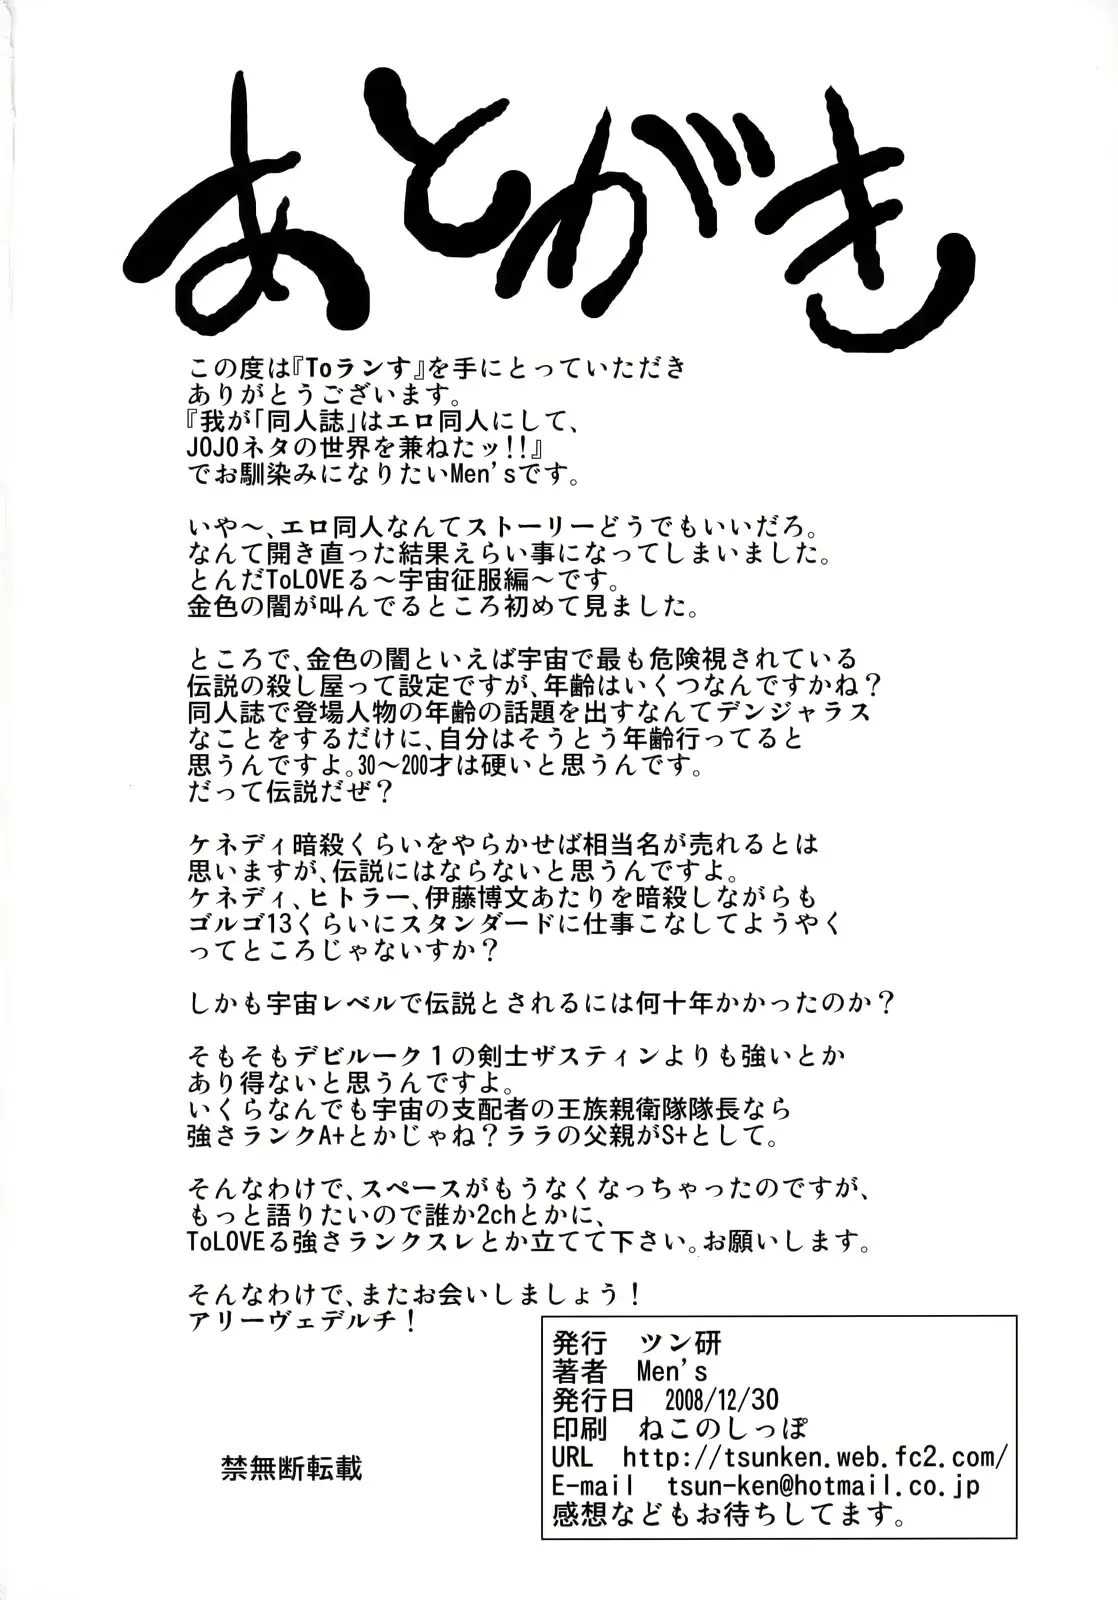 あとがき
この度は『Toランす』を手にとっていただき
ありがとうございます。
『我が「同人誌」はエロ同人にして、
JOJOネタの世界を兼ねたッ!!』
でお馴染みになりたいMen'sです。
いや～、エロ同人なんてストーリーどうでもいいだろ。
なんて開き直った結果えらい事になってしまいました。
とんだToLOVEる～宇宙征服編～です。
金色の闇が叫んでるところ初めて見ました。
ところで、金色の闇といえば宇宙で最も危険視されている
伝説の殺し屋って設定ですが、年齢はいくつなんですかね？
同人誌で登場人物の年齢の話題を出すなんてデンジャラス
なことをするだけに、自分はそうとう年齢行ってると
思うんですよ。30～200才は硬いと思うんです。
だって伝説だぜ？
ケネディ暗殺くらいをやらかせば相当名が売れるとは
思いますが、伝説にはならないと思うんですよ。
ケネディ、ヒトラー、伊藤博文あたりを暗殺しながらも
ゴルゴ13くらいにスタンダードに仕事こなしてようやく
ってところじゃないすか？
しかも宇宙レベルで伝説とされるには何十年かかったのか？
そもそもデビルーク１の剣士ザスティンよりも強いとか
あり得ないと思うんですよ。
いくらなんでも宇宙の支配者の王族親衛隊隊長なら
強さランクA+とかじゃね？ララの父親がS+として。
そんなわけで、スペースがもうなくなっちゃったのですが、
もっと語りたいので誰か2chとかに、
ToLOVEる強さランクスレとか立てて下さい。お願いします。
そんなわけで、またお会いしましょう！
アリーヴェデルチ！
発行　ツン研
著者　Men's
発行日　2008/12/30
印刷　ねこのしっぽ
URL　http://tsunken.web.fc2.com/
E-mail　tsun-ken@hotmail.co.jp
感想などもお待ちしてます。
禁無断転載